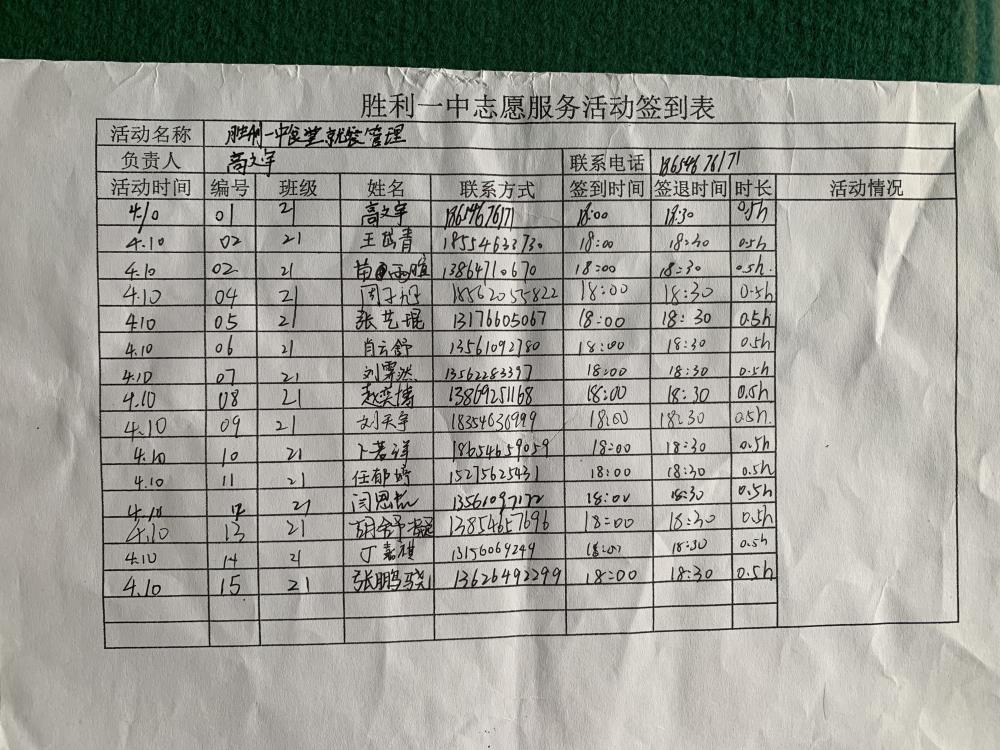 胜利一中志愿服务活动签到表
活动名称 胜利一中食堂就餐管理
负责人 高文宇 联系电话 18654676171
活动时间 编号 班级 姓名 联系方式 签到时间 签退时间 时长 活动情况
4.10 01 21 高文宇 18654676171 18:00 18:30 0.5h
4.10 02 21 王岱青 18554633730 18:00 18:30 0.5h
4.10 02 21 13864710670 18:00 18:30 0.5h.
4.10 04 21 18562055822 18:00 18:30 0.5h
4.10 05 21 张艺琨 13176605067 18:00 18:30 0.5h
4.10 06 21 肖云舒 13561092780 18:00 18:30 0.5h
4.10 07 21 刘霁然 13562283397 18:00 18:30 0.5h
4.10 08 21 赵奕博 13869251168 18:00 18:30 0.5h
4.10 09 21 刘天宇 18354636999 18:00 18:30 0.5h.
4.10 10 21 卜若洋 18654659059 18:00 18:30 0.5h
4.10 11 21 任郁婷 15275625431 18:00 18:30 0.5h
4.10 12 21 13561097172 18:00 18:30 0.5h
4.10 13 21 胡舒凝 13854657696 18:00 18:30 0.5h
4.10 14 21 丁嘉祺 13156069249 18:00 18:30 0.5h
4.10 15 21 张鹏骁 13626492299 18:00 18:30 0.5h